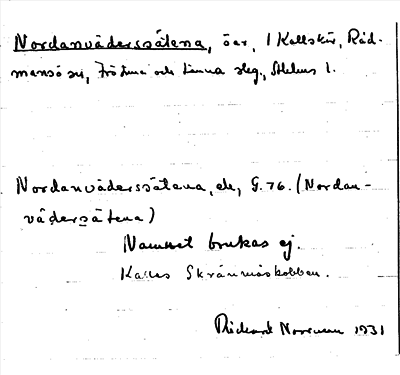 Nordanväderssätena, öar, i Kallskär, Råd-
mansö sn, Frötuna och Länna slg., Sthlms l.
Nordanväderssätena, ek, G. 76. (Nordan-
vädersätena)
Namnet brukas ej.
Kallas Skränmåskobben.
Rickard Norrman 1931